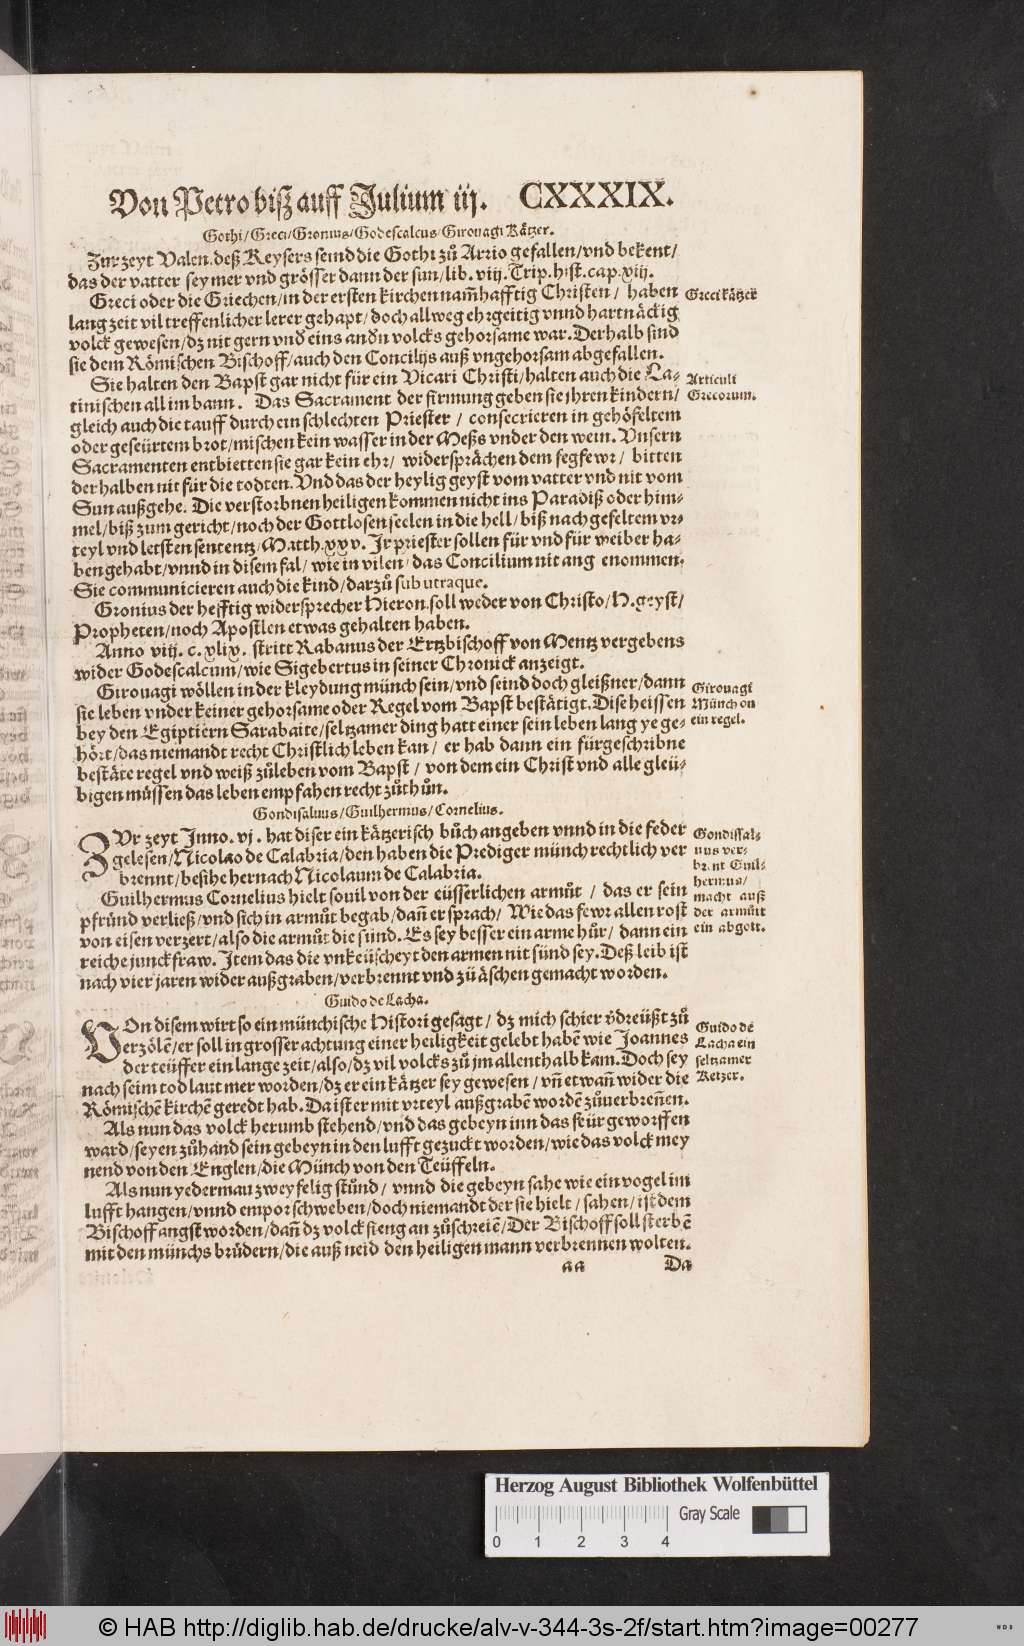 Von Petro biß auff Julium iij. CXXXIX.
Gothi/Greci/Gronius/Godescalcus/Girouagi Kätzer.
Zur zeyt Valen. deß Keysers seind die Gothi zů Arrio gefallen/vnd bekent/
das der vatter sey mer vnd grösser dann der sun/lib. viij. Trip. hist. cap. xiij.
Greci oder die Griechen/in der ersten kirchen nam̃hafftig Christen/ haben
lang zeit vil treffenlicher lerer gehapt/doch allweg ehrgeitig vnnd hartnäckig
volck gewesen/dz nit gern vnd eins andn volcks gehorsame war. Derhalb sind
sie dem Römischen Bischoff/auch den Concilijs auß vngehorsam abgefallen.
Greci kätzer
Sie halten den Bapst gar nicht für ein Vicari Christi/halten auch die La-
tinischen all im bann. Das Sacrament der firmung geben sie jhren kindern/
gleich auch die tauff durch ein schlechten Priester / consecrieren in gehöfeltem
oder geseürtem brot/mischen kein wasser in der Meßs vnder den wein. Vnsern
Sacramenten entbietten sie gar kein ehr/ widersprächen dem fegfewr/ bitten
derhalben nit für die todten. Vnd das der heylig geyst vom vatter vnd nit vom
Sun außgehe. Die verstorbnen heiligen kommen nicht ins Paradiß oder him-
mel/biß zum gericht/noch der Gottlosen seelen in die hell/biß nach gefeltem vr-
teyl vnd letsten sententz/Matth. xxv. Jr priester sollen für vnd für weiber ha-
ben gehabt/vnnd in disem fal/ wie in vilen/das Concilium nit ang enommen.
Sie communicieren auch die kind/darzů sub utraque.
Articuli
Grecorum.
Gronius der hefftig widersprecher Hieron. soll weder von Christo/H. geyst/
Propheten/noch Apostlen etwas gehalten haben.
Anno viij. c. xlix. stritt Rabanus der Ertzbischoff von Mentz vergebens
wider Godescalcum/wie Sigebertus in seiner Chronick anzeigt.
Girouagi wöllen in der kleydung münch sein/vnd seind doch gleißner/dann
sie leben vnder keiner gehorsame oder Regel vom Bapst bestätigt. Dise heissen
bey den Egiptiern Sarabaite/seltzamer ding hatt einer sein leben lang ye ge-
hört/das niemandt recht Christlich leben kan/ er hab dann ein fürgeschribne
bestäte regel vnd weiß zůleben vom Bapst/ von dem ein Christ vnd alle gleü-
bigen müssen das leben empfahen recht zůthůn.
Girouagi
Münch on
ein regel.
Gondisaluus/Guilhermus/Cornelius.
ZVr zeyt Inno. vj. hat diser ein kätzerisch bůch angeben vnnd in die feder
gelesen/Nicolao de Calabria/den haben die Prediger münch rechtlich ver
brennt/besihe hernach Nicolaum de Calabria.
Gondissal-
nus ver-
brent Guil-
hermus/
macht auß
der armůtt
ein abgott.
Guilhermus Cornelius hielt souil von der eüsserlichen armůt / das er sein
pfründ verließ/vnd sich in armůt begab/dañ er sprach/ Wie das fewr allen rost
von eisen verzert/also die armůt die sünd. Es sey besser ein arme hůr/ dann ein
reiche junckfraw. Item das die vnkeüscheyt den armen nit sünd sey. Deß leib ist
nach vier jaren wider außgraben/verbrennt vnd zů äschen gemacht worden.
Guido de Lacha.
VOn disem wirt so ein münchische Histori gesagt/ dz mich schier v̄dreüßt zů
erzölē/er soll in grosser achtung einer heiligkeit gelebt habē wie Joannes
der teüffer ein lange zeit/also/dz vil volcks zů jm allenthalb kam. Doch sey
nach seim tod laut mer worden/dz er ein kätzer sey gewesen/ vñ etwañ wider die
Römischē kirchē geredt hab. Da ist er mit vrteyl außgrabē wordē zůuerbreñen.
Guido de
Lacha ein
seltzamer
Ketzer.
Als nun das volck herumb stehend/vnd das gebeyn inn das feür geworffen
ward/seyen zůhand sein gebeyn in den lufft gezuckt worden/wie das volck mey
nend von den Englen/die Münch von den Teüffeln.
Als nun yederman zweyfelig stůnd/ vnnd die gebeyn sahe wie ein vogel im
lufft hangen/vnnd empor schweben/doch niemandt der sie hielt/sahen/ist dem
Bischoff angst worden/dañ dz volck fieng an zůschreiē/Der Bischoff soll sterbē
mit den münchs brüdern/die auß neid den heiligen mann verbrennen wolten.
aa Da
Herzog August Bibliothek Wolfenbüttel
Gray Scale
0 1 2 3 4
© HAB http://diglib.hab.de/drucke/alv-v-344-3s-2f/start.htm?image=00277